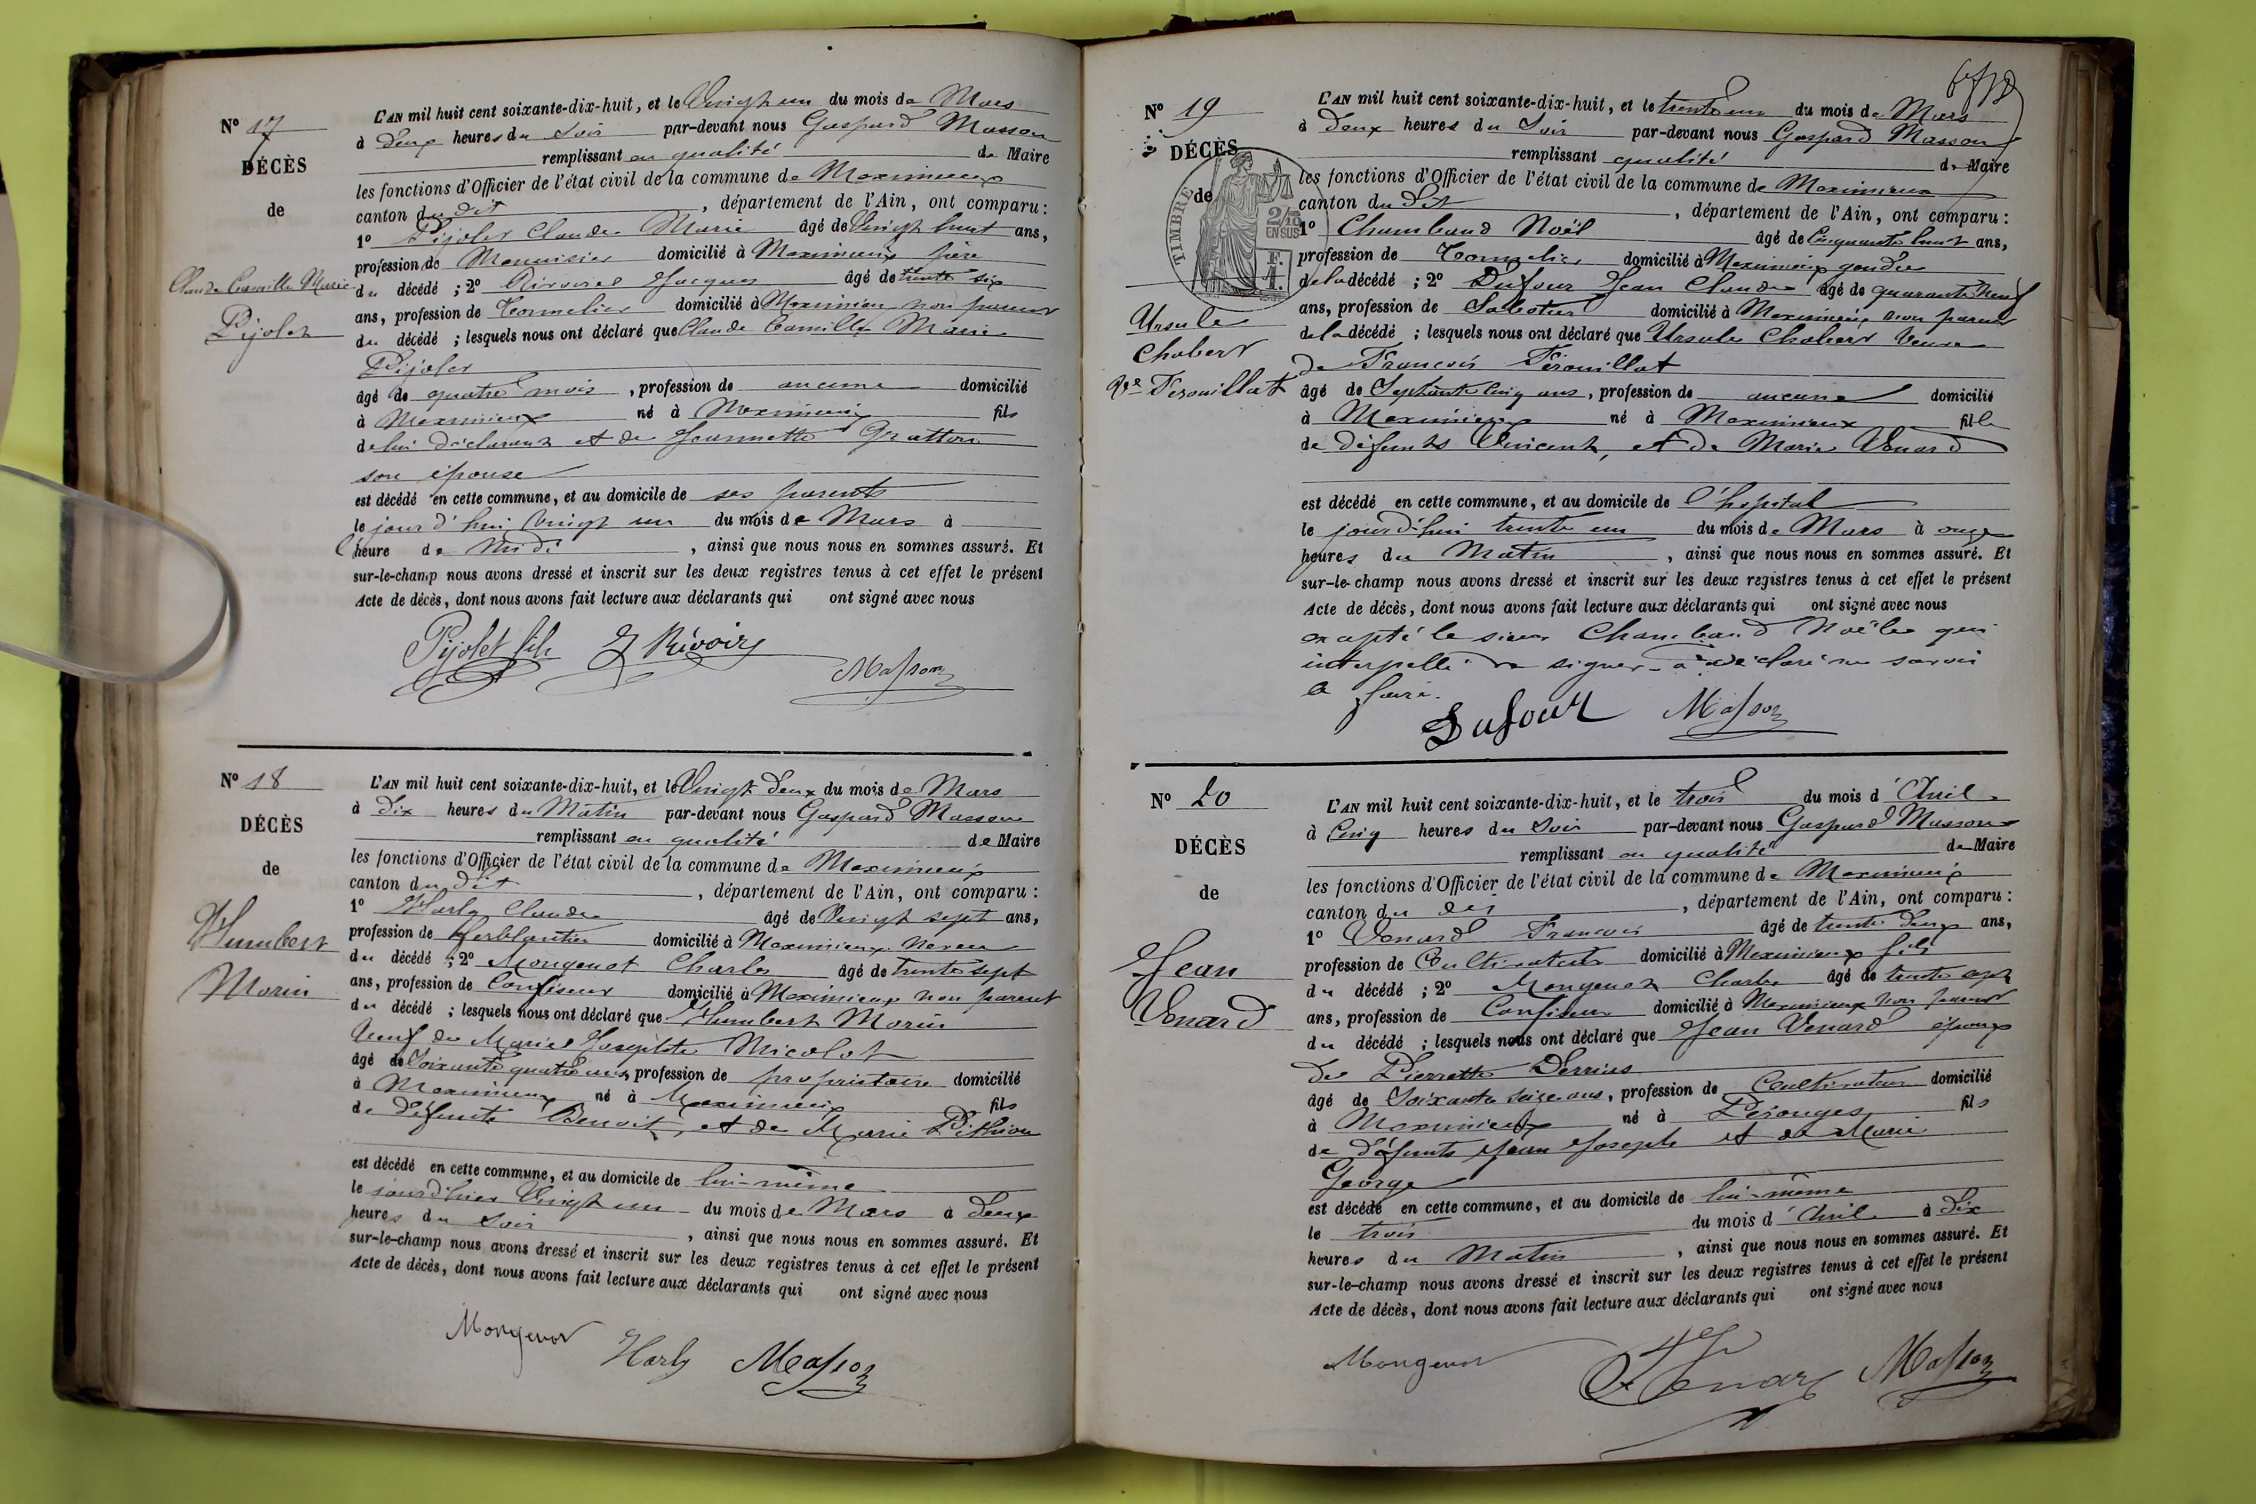 N° 17
DÉCÈS
de
Claude Camille Marie
Pijolet
L'AN mil huit cent soixante-dix-huit, et le Vingt un du mois de Mars
à deux heures du Soir par-devant nous Gaspard Masson
remplissant en qualité de Maire
les fonctions d'Officier de l'état civil de la commune de Meximieux
canton du dit, département de l'Ain, ont comparu :
1° Pijolet Claude Marie âgé de Vingt huit ans,
profession de Menuisier domicilié à Meximieux père
du décédé ; 2° Jacques âgé de trente six
ans, profession de Tonnelier domicilié à Meximieux non parent
du décédé ; lesquels nous ont déclaré que Claude Camille Marie
Pijolet
âgé de quatre mois, profession de aucune domicilié
à Meximieux né à Meximieux fils
de lui déclarant et de Jeannette Gratton
son épouse
est décédé en cette commune, et au domicile de ses parents
le jourd'hui Vingt un du mois de Mars à
l'heure de Midi, ainsi que nous nous en sommes assuré. Et
sur-le-champ nous avons dressé et inscrit sur les deux registres tenus à cet effet le présent
Acte de décès, dont nous avons fait lecture aux déclarants qui ont signé avec nous
Pijolet fils J Révoir Masson
N° 18
DÉCÈS
de
Humbert
Morin
L'AN mil huit cent soixante-dix-huit, et le Vingt deux du mois de Mars
à Dix heures du Matin par-devant nous Gaspard Masson
remplissant en qualité de Maire
les fonctions d'Officier de l'état civil de la commune de Meximieux
canton du dit, département de l'Ain, ont comparu :
1° Harly Claude âgé de Vingt sept ans,
profession de ferblantier domicilié à Meximieux Neveu
du décédé ; 2° Mongenot Charles âgé de trente sept
ans, profession de Confiseur domicilié à Meximieux non parent
du décédé ; lesquels nous ont déclaré que Humbert Morin
Veuf de Marie Josephte Micolot
âgé de Soixante quatre ans, profession de propriétaire domicilié
à Meximieux né à Meximieux fils
de défunts Benoit, et de Marie Pithiou
est décédé en cette commune, et au domicile de lui-même
le jourd'hier Vingt un du mois de Mars à deux
heures du Soir, ainsi que nous nous en sommes assuré. Et
sur-le-champ nous avons dressé et inscrit sur les deux registres tenus à cet effet le présent
Acte de décès, dont nous avons fait lecture aux déclarants qui ont signé avec nous
Mongenot Harly Masson
N° 19
DÉCÈS
de
TIMBRE
2/10 EN SUS
F. 1.
Ursule
Chobert
Vve Férouillat
L'AN mil huit cent soixante-dix-huit, et le trente un du mois de Mars
à deux heures du Soir par-devant nous Gaspard Masson
remplissant qualité de Maire
les fonctions d'Officier de l'état civil de la commune de Meximieux
canton du dit, département de l'Ain, ont comparu :
1° Chambaud Noël âgé de Cinquante huit ans,
profession de Tonnelier domicilié à Meximieux gendre
de la décédé ; 2° Dufour Jean Claude âgé de quarante neuf
ans, profession de Sabotier domicilié à Meximieux non parent
de la décédé ; lesquels nous ont déclaré que Ursule Chobert Veuve
de François Férouillat
âgé de Septante cinq ans, profession de aucune domicilié
à Meximieux né à Meximieux fille
de défunts Vincent, et de Marie Venard
est décédé en cette commune, et au domicile de l'hopital
le jourd'hui trente un du mois de Mars à onze
heures du Matin, ainsi que nous nous en sommes assuré. Et
sur-le-champ nous avons dressé et inscrit sur les deux registres tenus à cet effet le présent
Acte de décès, dont nous avons fait lecture aux déclarants qui ont signé avec nous
excepté le sieur Chambaud Noël qui
interpellé de signer a déclaré ne savoir
le faire.
Dufour Masson
N° 20
DÉCÈS
de
Jean
Venard
L'AN mil huit cent soixante-dix-huit, et le trois du mois d'Avril
à Cinq heures du Soir par-devant nous Gaspard Masson
remplissant en qualité de Maire
les fonctions d'Officier de l'état civil de la commune de Meximieux
canton du dit, département de l'Ain, ont comparu :
1° Venard François âgé de trente deux ans,
profession de Cultivateur domicilié à Meximieux fils
du décédé ; 2° Mongenot Charles âgé de trente sept
ans, profession de Confiseur domicilié à Meximieux non parent
du décédé ; lesquels nous ont déclaré que Jean Venard époux
de Pierrette Derrias
âgé de Soixante seize ans, profession de Cultivateur domicilié
à Meximieux né à Pérouges fils
de défunts Jean Joseph et de Marie
George
est décédé en cette commune, et au domicile de lui-même
le trois du mois d'Avril à Dix
heures du Matin, ainsi que nous nous en sommes assuré. Et
sur-le-champ nous avons dressé et inscrit sur les deux registres tenus à cet effet le présent
Acte de décès, dont nous avons fait lecture aux déclarants qui ont signé avec nous
Mongenot Venard Masson